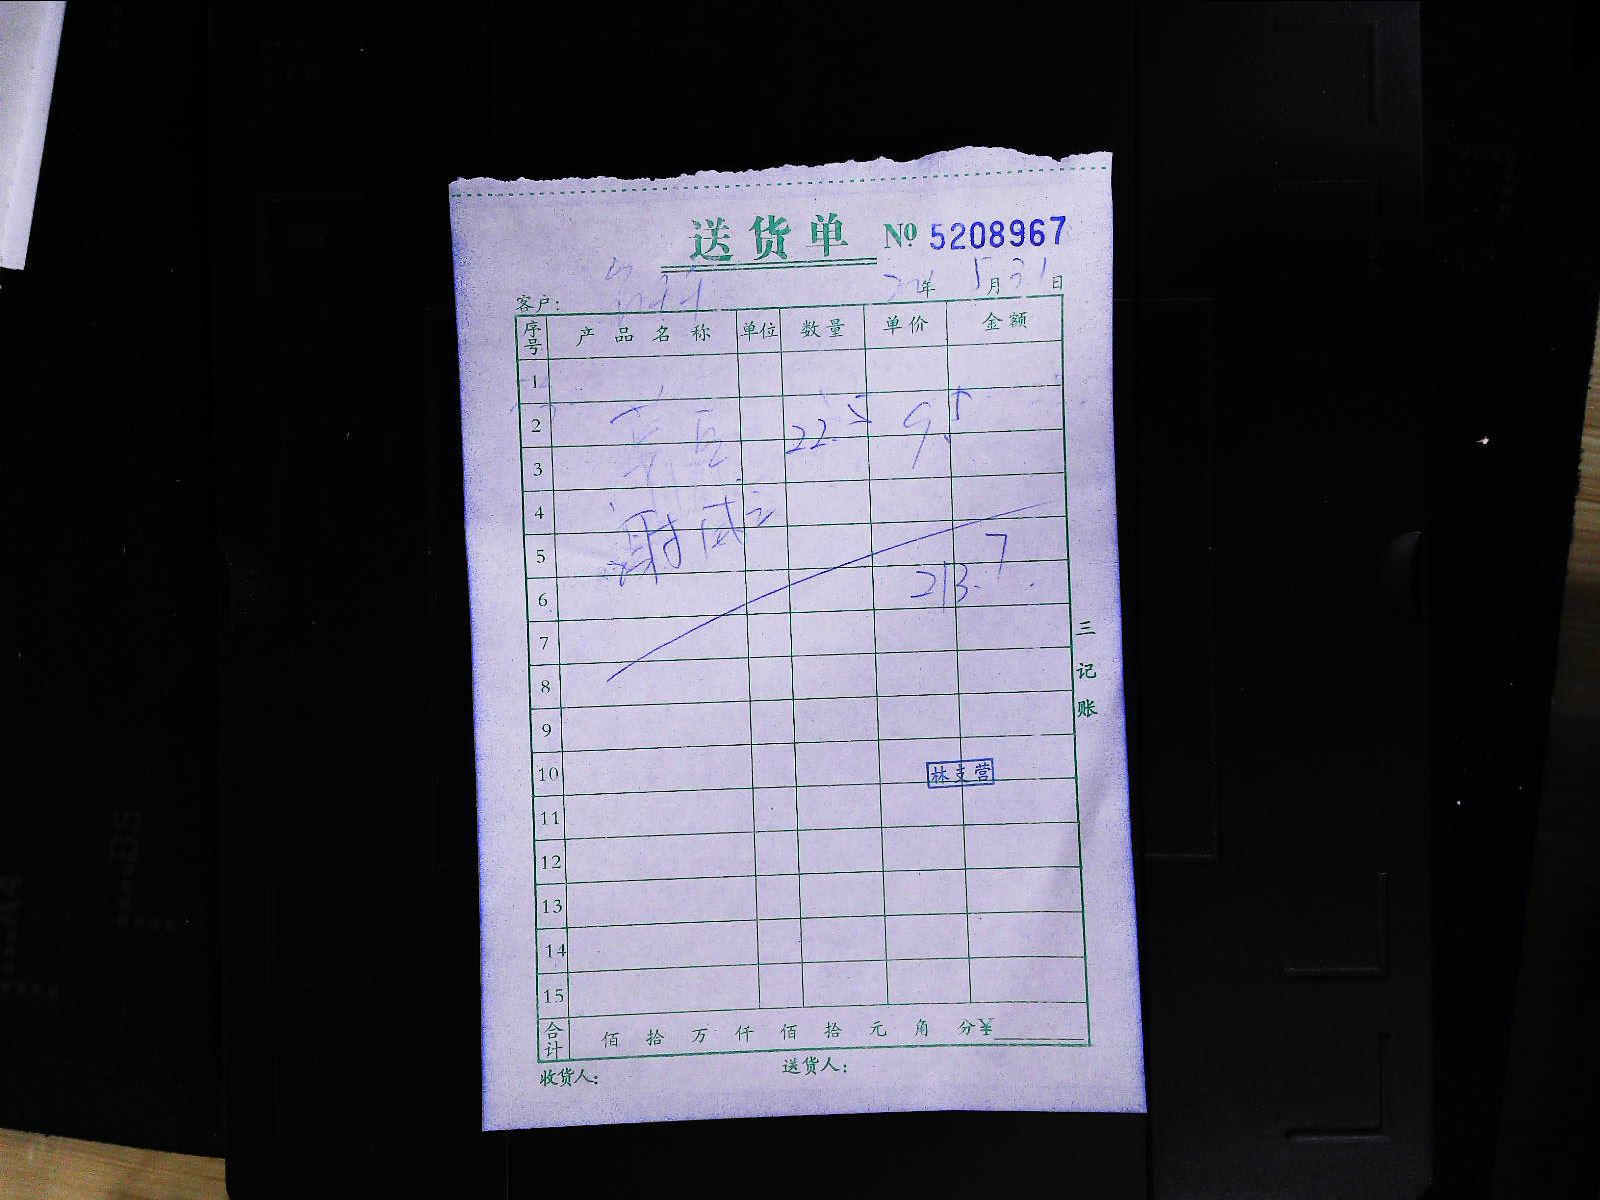 送货单 № 5208967
客户: 22年 5月31日
序号 产品名称 单位 数量 单价 金额
1
2 22.5 9.5
3
4
5 谢威
6 213.7
7
8
9
10 林支营
11
12
13
14
15
合计 佰 拾 万 仟 佰 拾 元 角 分¥
收货人: 送货人:
三记账
B5
A4